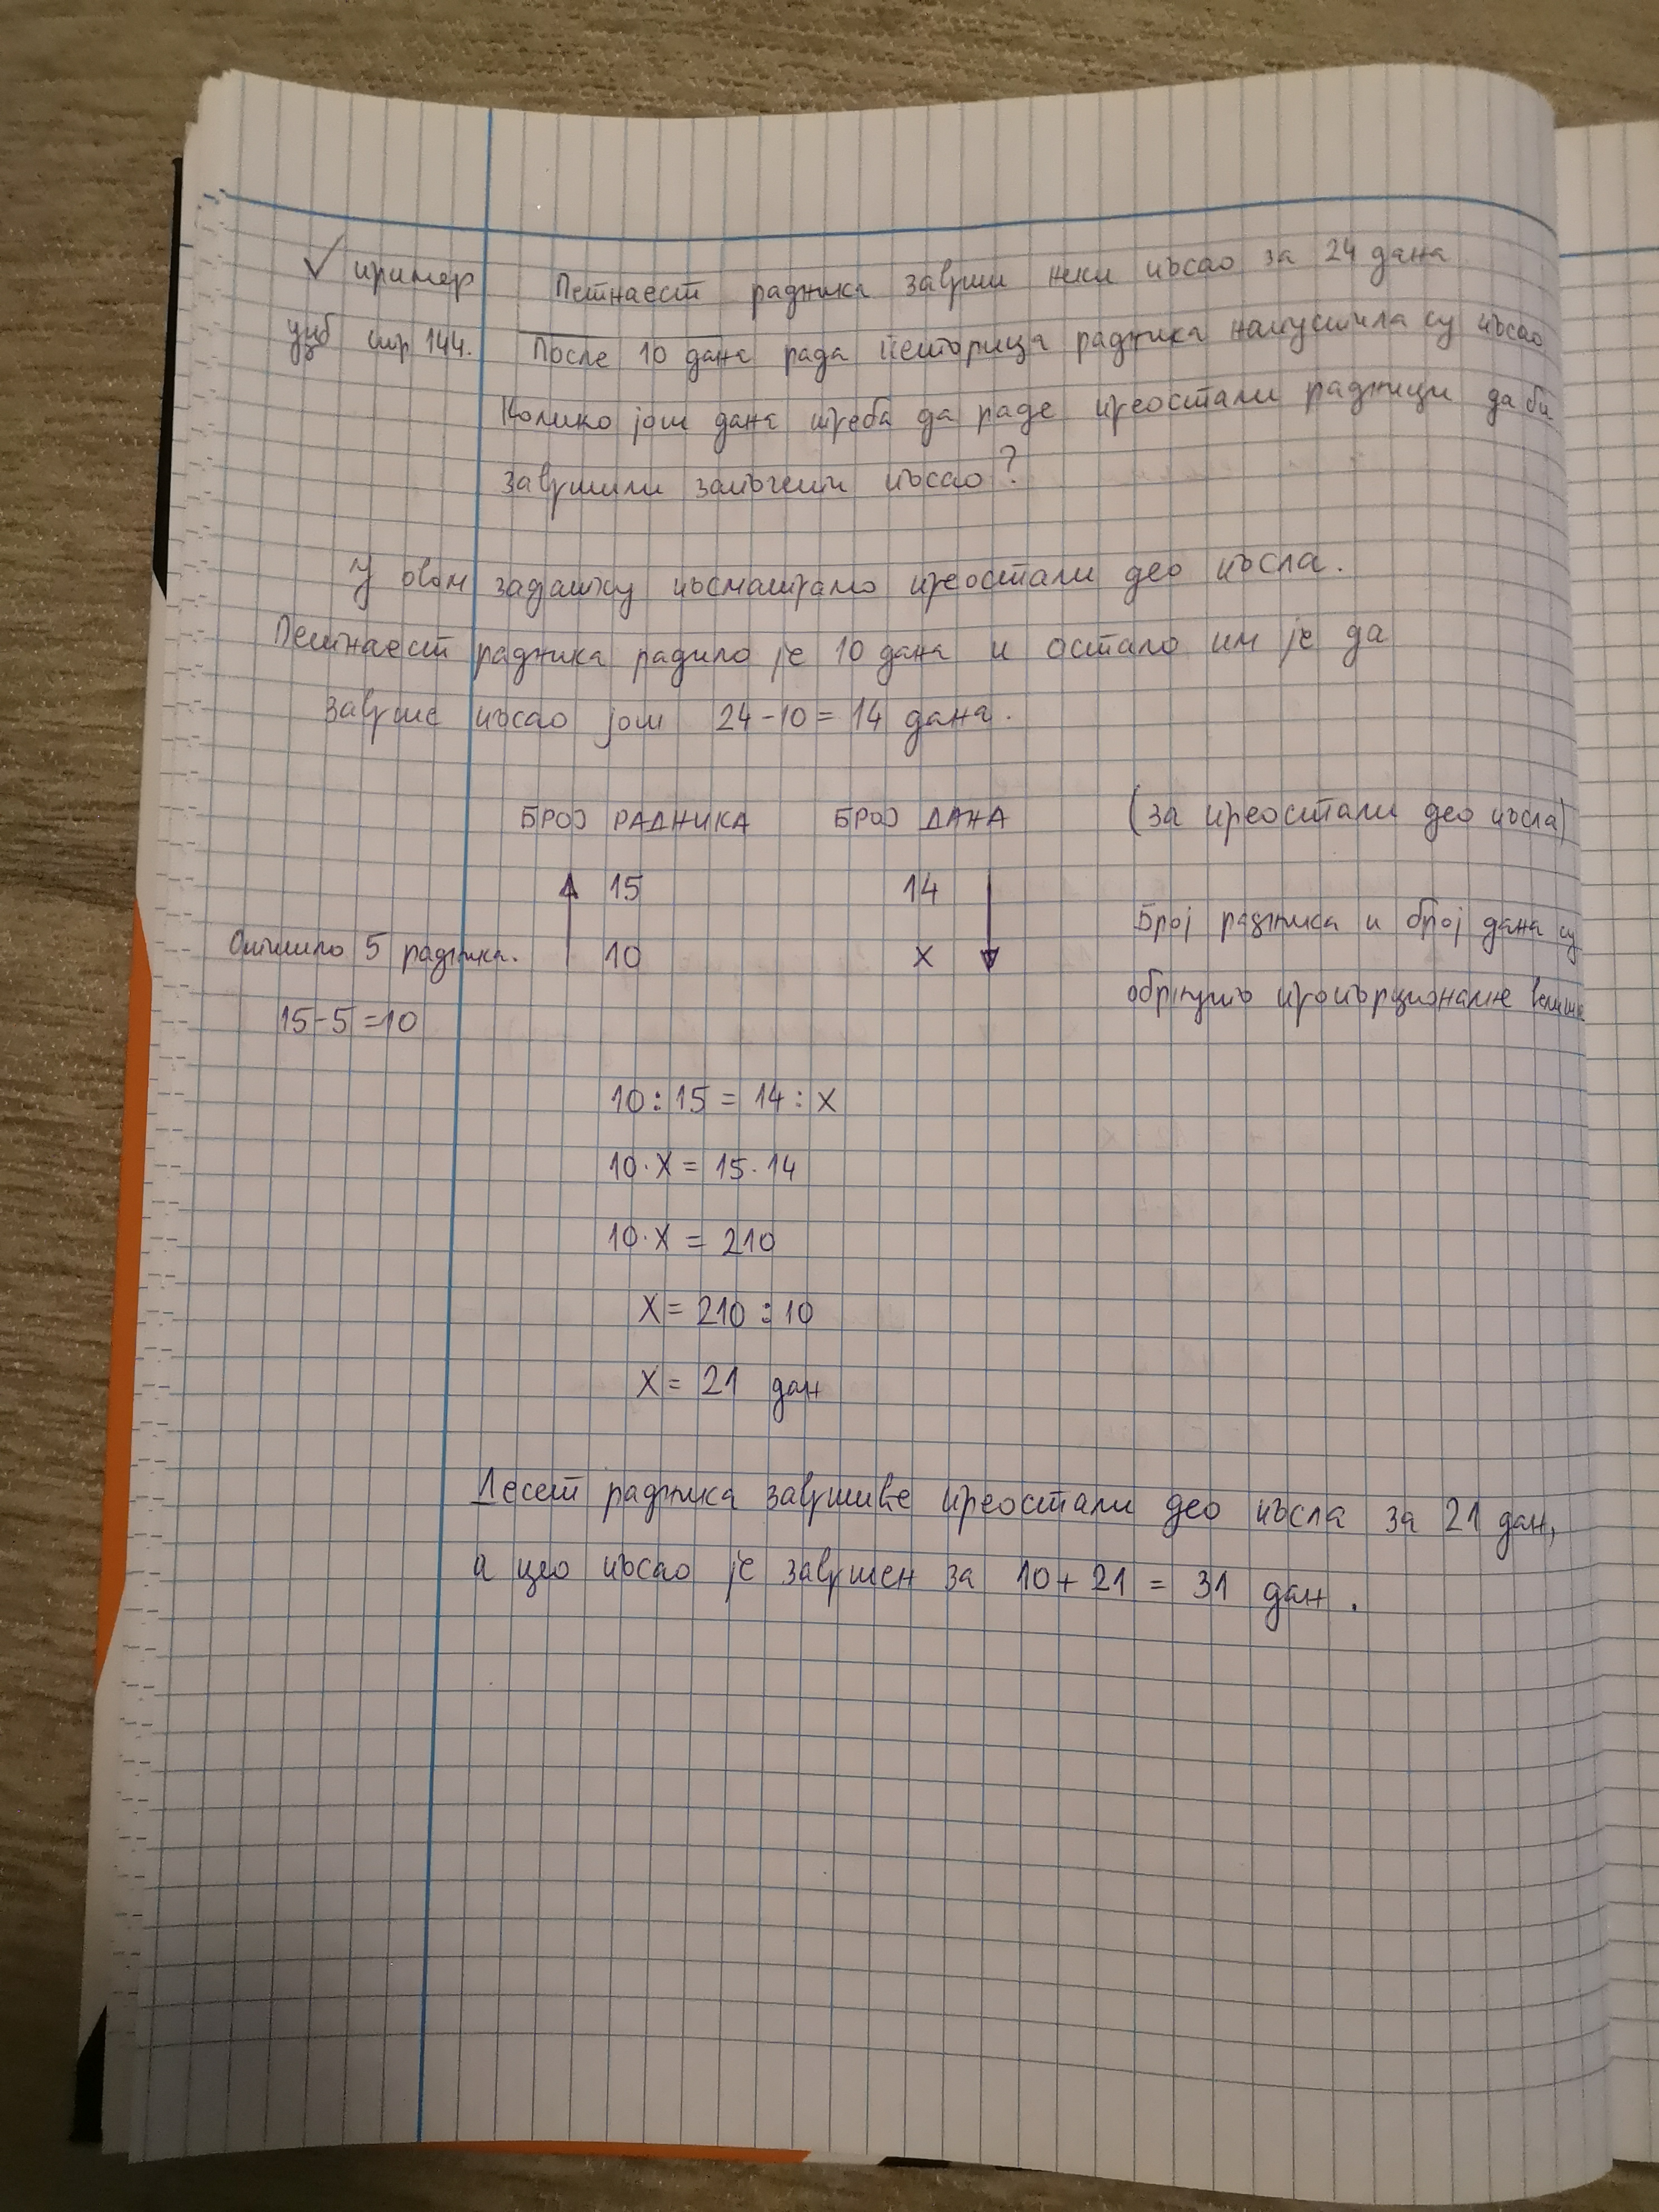 ✓ пример Петнаест радника заврши неки посао за 24 дана.
уџб стр 144. После 10 дана рада петорица радника напустила су посао
Колико још дана треба да раде преостали радници да би
завршили започети посао?
У овом задатку посматрамо преостали део посла.
Петнаест радника радило је 10 дана и остало им је да
заврше посао још 24-10=14 дана.
БРОЈ РАДНИКА БРОЈ ДАНА (за преостали део посла)
↑ 15 14 ↓
Број радника и број дана су
Отишло 5 радника. 10 x
обрнуто пропорционалне величине
15-5=10
10:15=14:x
10·x=15·14
10·x=210
x=210:10
x=21 дан
Десет радника завршиће преостали део посла за 21 дан,
а цео посао је завршен за 10+21=31 дан.